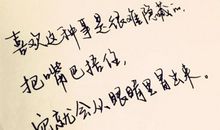 喜欢这种事是很难隐藏的。
把嘴巴捂住,
它就会从眼睛里冒出来。